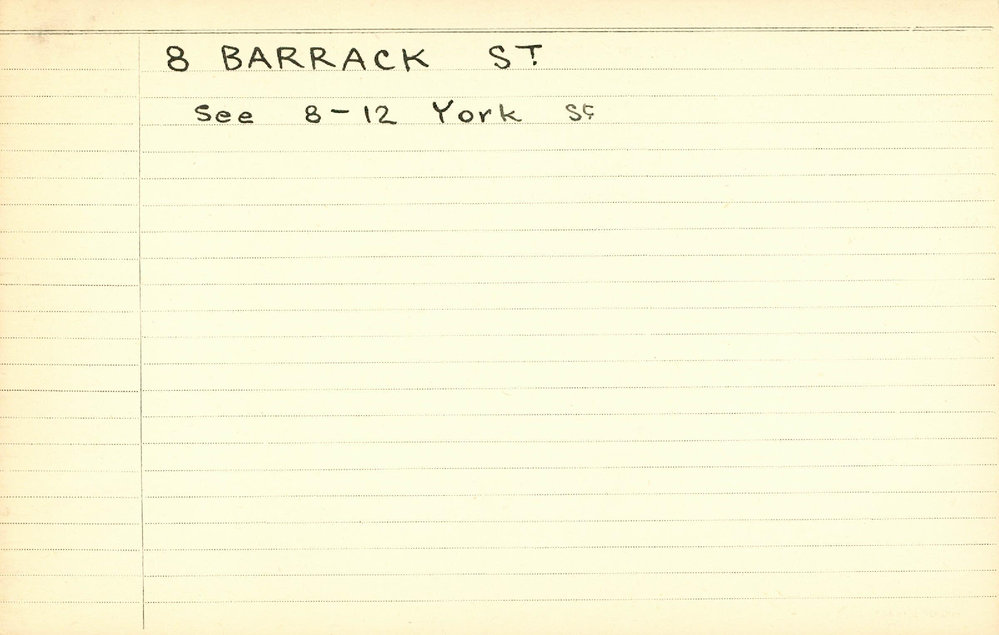 8 BARRACK ST
See 8-12 York St